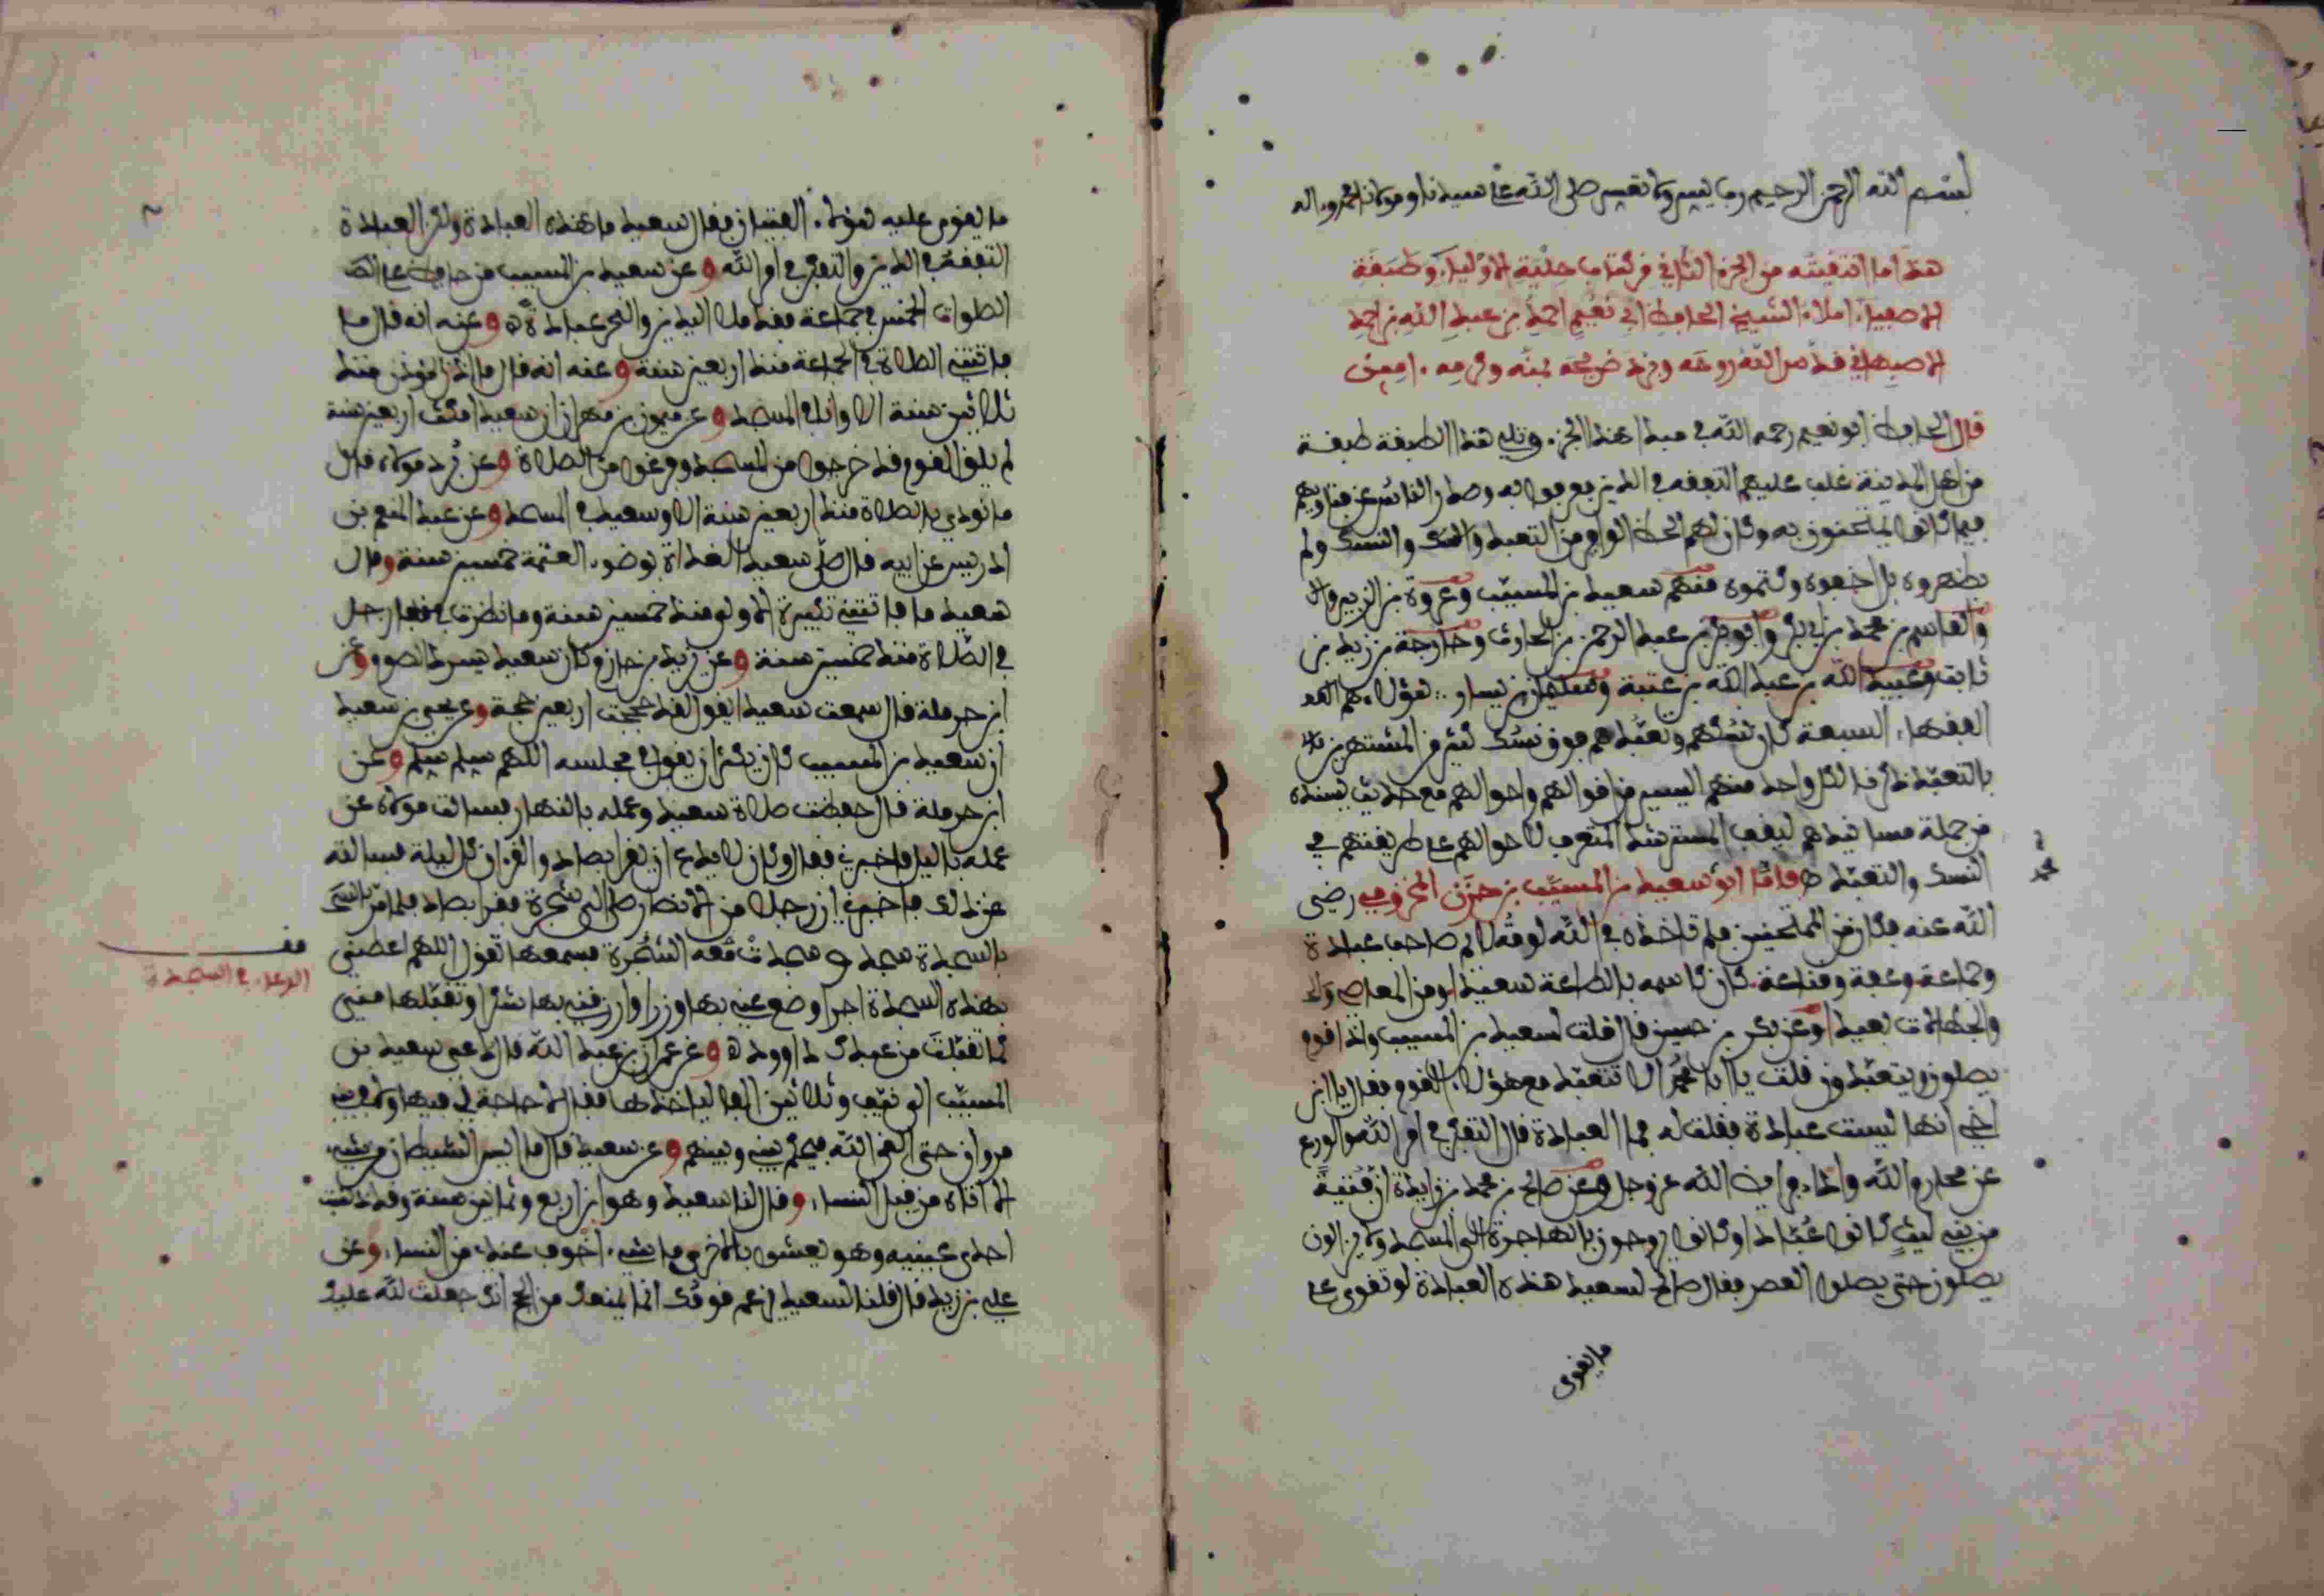 بسم الله الرحمن الرحيم رب يسر ولا تعسر صلى الله على سيدنا ومولانا محمد واله
هذا ما انتقيته من الجزء الثاني من كتاب حلية الاولياء وطبقة
الاصفياء املاء الشيخ الحافظ ابي نعيم احمد بن عبد الله بن احمد
الاصبهاني قدس الله روحه وبرد ضريحه بمنه وكرمه امين
قال الحافظ ابو نعيم رحمه الله في مبدا هذا الجزء وتلي هذا الطبقة طبقة
من اهل المدينة غلب عليهم التفقه في الدين فعرفوا به وصدر الناس عن فتاويهم
فيما كانوا يمتحنون به وكان لهم الحظ الوافر من التعبد والنسك ولم
يظهروه بل اخفوه وكتموه منهم سعيد بن المسيب وعروة بن الزبير وال
والقاسم بن محمد بن ابي بكر وابو بكر بن عبد الرحمن بن الحارث وخارجة بن زيد بن
ثابت وعبيد الله بن عبد الله بن عتبة وسليمان بن يسار هؤلاء هم
الفقهاء السبعة كان تنسكهم وتعبدهم فوق نسك كثير من المشتهرين
بالتعبد ذكرنا لكل واحد منهم اليسير من اقوالهم واحوالهم مع حديث يسنده
من جملة مسانيدهم ليقف المسترشد المتعرف لاحوالهم على طريقتهم في
النسك والتعبد فاما ابو سعيد بن المسيب بن حزن المخزومي رضي
الله عنه فكان من الممتحنين فلم تاخذه في الله لومة لائم صاحب عبادة
وجماعة وعفة وقناعة كان كاسمه بالطاعة سعيدا ومن المعاصي
والجهالات بعيدا وعن بكر بن خنيس قال قلت لسعيد بن المسيب واذا قوم
يصلون ويتعبدون قلت يا ابا محمد الا تتعبد مع هؤلاء القوم فقال يا ابن
اخي انها ليست عبادة فقلت له فما العبادة قال التفكر في امر الله والورع
عن محارم الله واداء فرائض الله عز وجل وعن صالح بن محمد بن زايدة ان فتية
من بني ليث كانوا عبادا وكانوا يروحون بالهاجرة الى المسجد ولا يزالون
يصلون حتى يصلوا العصر فقال صالح لسعيد هذه العبادة لو تقوى على
ما يقوى
محمد
ما يقوى عليه هؤلاء الفتيان فقال سعيد ما هذه العبادة ولكن العبادة
التفقه في الدين والتفكر في امر الله وعن سعيد بن المسيب من حافظ على
الصلوات الخمس في جماعة فقد ملا البر والبحر عبادة وعنه انه قال ما
فاتتني الصلاة في الجماعة منذ اربعين سنة وعنه انه قال ما اذن المؤذن منذ
ثلاثين سنة الا وانا في المسجد وعن ميمون بن مهران ان سعيدا مكث اربعين سنة
لم يلق القوم قد خرجوا من المسجد وفرغوا من الصلاة وعن برد مولاه قال
ما نودي بالصلاة منذ اربعين سنة الا وسعيد في المسجد وعن عبد المنعم بن
ادريس عن ابيه قال صلى سعيد الغداة بوضوء العتمة خمسين سنة وقال
سعيد ما فاتتني تكبيرة الاولى منذ خمسين سنة وما نظرت في قفا رجل
في الصلاة منذ خمسين سنة وعن يزيد بن حازم وكان سعيد يسرد الصوم وعن
ابن حرملة قال سمعت سعيدا يقول لقد حججت اربعين حجة وعن يحيى بن سعيد
ان سعيد بن المسيب كان يكثر ان يقول في مجلسه اللهم سلم سلم وعن
ابن حرملة قال حفظت صلاة سعيد وعمله بالنهار فسالت مولاه عن
عمله بالليل فاخبرني فقال وكان لا يدع ان يقرا بصاد والقرءان كل ليلة فسالته
عن ذلك فاخبرني ان رجلا من الانصار صلى الى شجرة فقرا بصاد فلما مر
بالسجدة سجد وسجدت معه الشجرة فسمعها تقول اللهم اعطني
بهذه السجدة اجرا وضع عني بها وزرا وارزقني بها شكرا وتقبلها مني
كما تقبلت من عبدك داوود وعن عمران بن عبد الله قال دعي سعيد بن
المسيب الى نيف وثلاثين الفا لياخذها فقال لا حاجة لي فيها ولا في بني
مروان حتى القى الله فيحكم بيني وبينهم وعن سعيد قال ما ايس الشيطان من شيء
الا اتاه من قبل النساء وقال لنا سعيد وهو ابن اربع وثمانين سنة وقد ذهبت
احدى عينيه وهو يعشو بالاخرى ما شيء اخوف عندي من النساء وعن
علي بن زيد قال قلنا لسعيد يزعم قومك انما يمنعك من الحج انك جعلت لله عليك
قف
الدعاء في السجدة